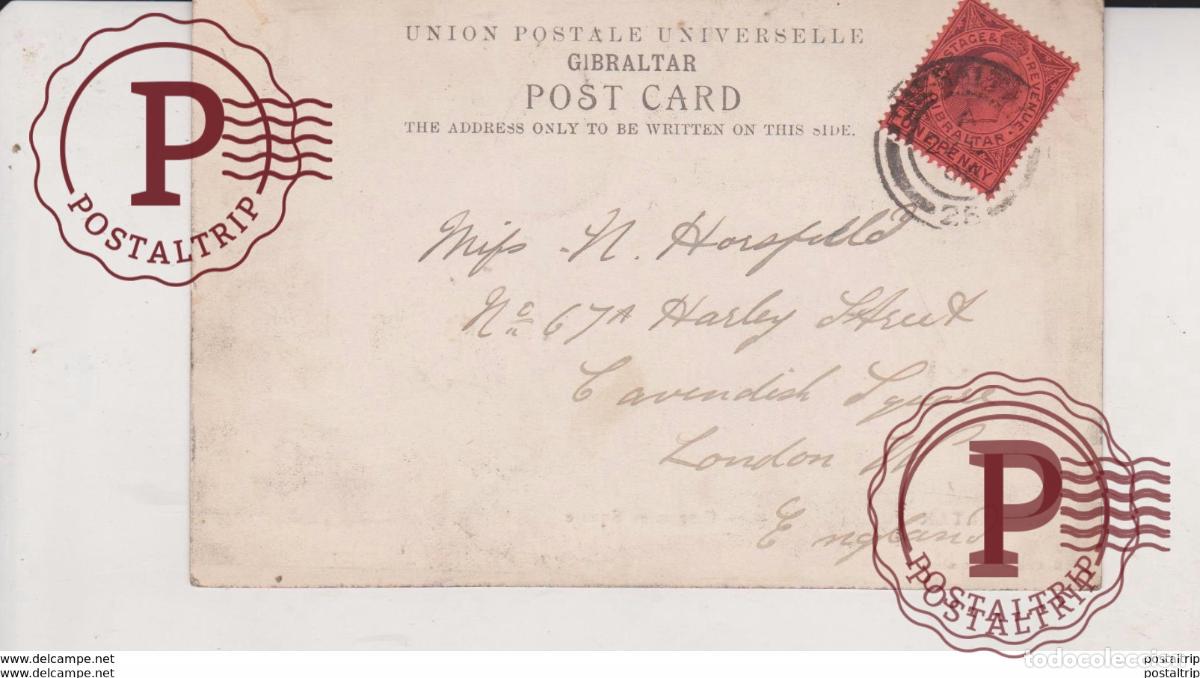 UNION POSTALE UNIVERSELLE
GIBRALTAR
POST CARD
THE ADDRESS ONLY TO BE WRITTEN ON THIS SIDE.
POSTAGE & REVENUE
GIBRALTAR
ONE PENNY
26
Miss N. Horsfield
No 67A Harley Street
Cavendish Square
London W
England
P
POSTALTRIP
P
POSTALTRIP
POSTALTRIP
todocoleccion
www.delcampe.net
postaltrip
www.delcampe.net
postaltrip